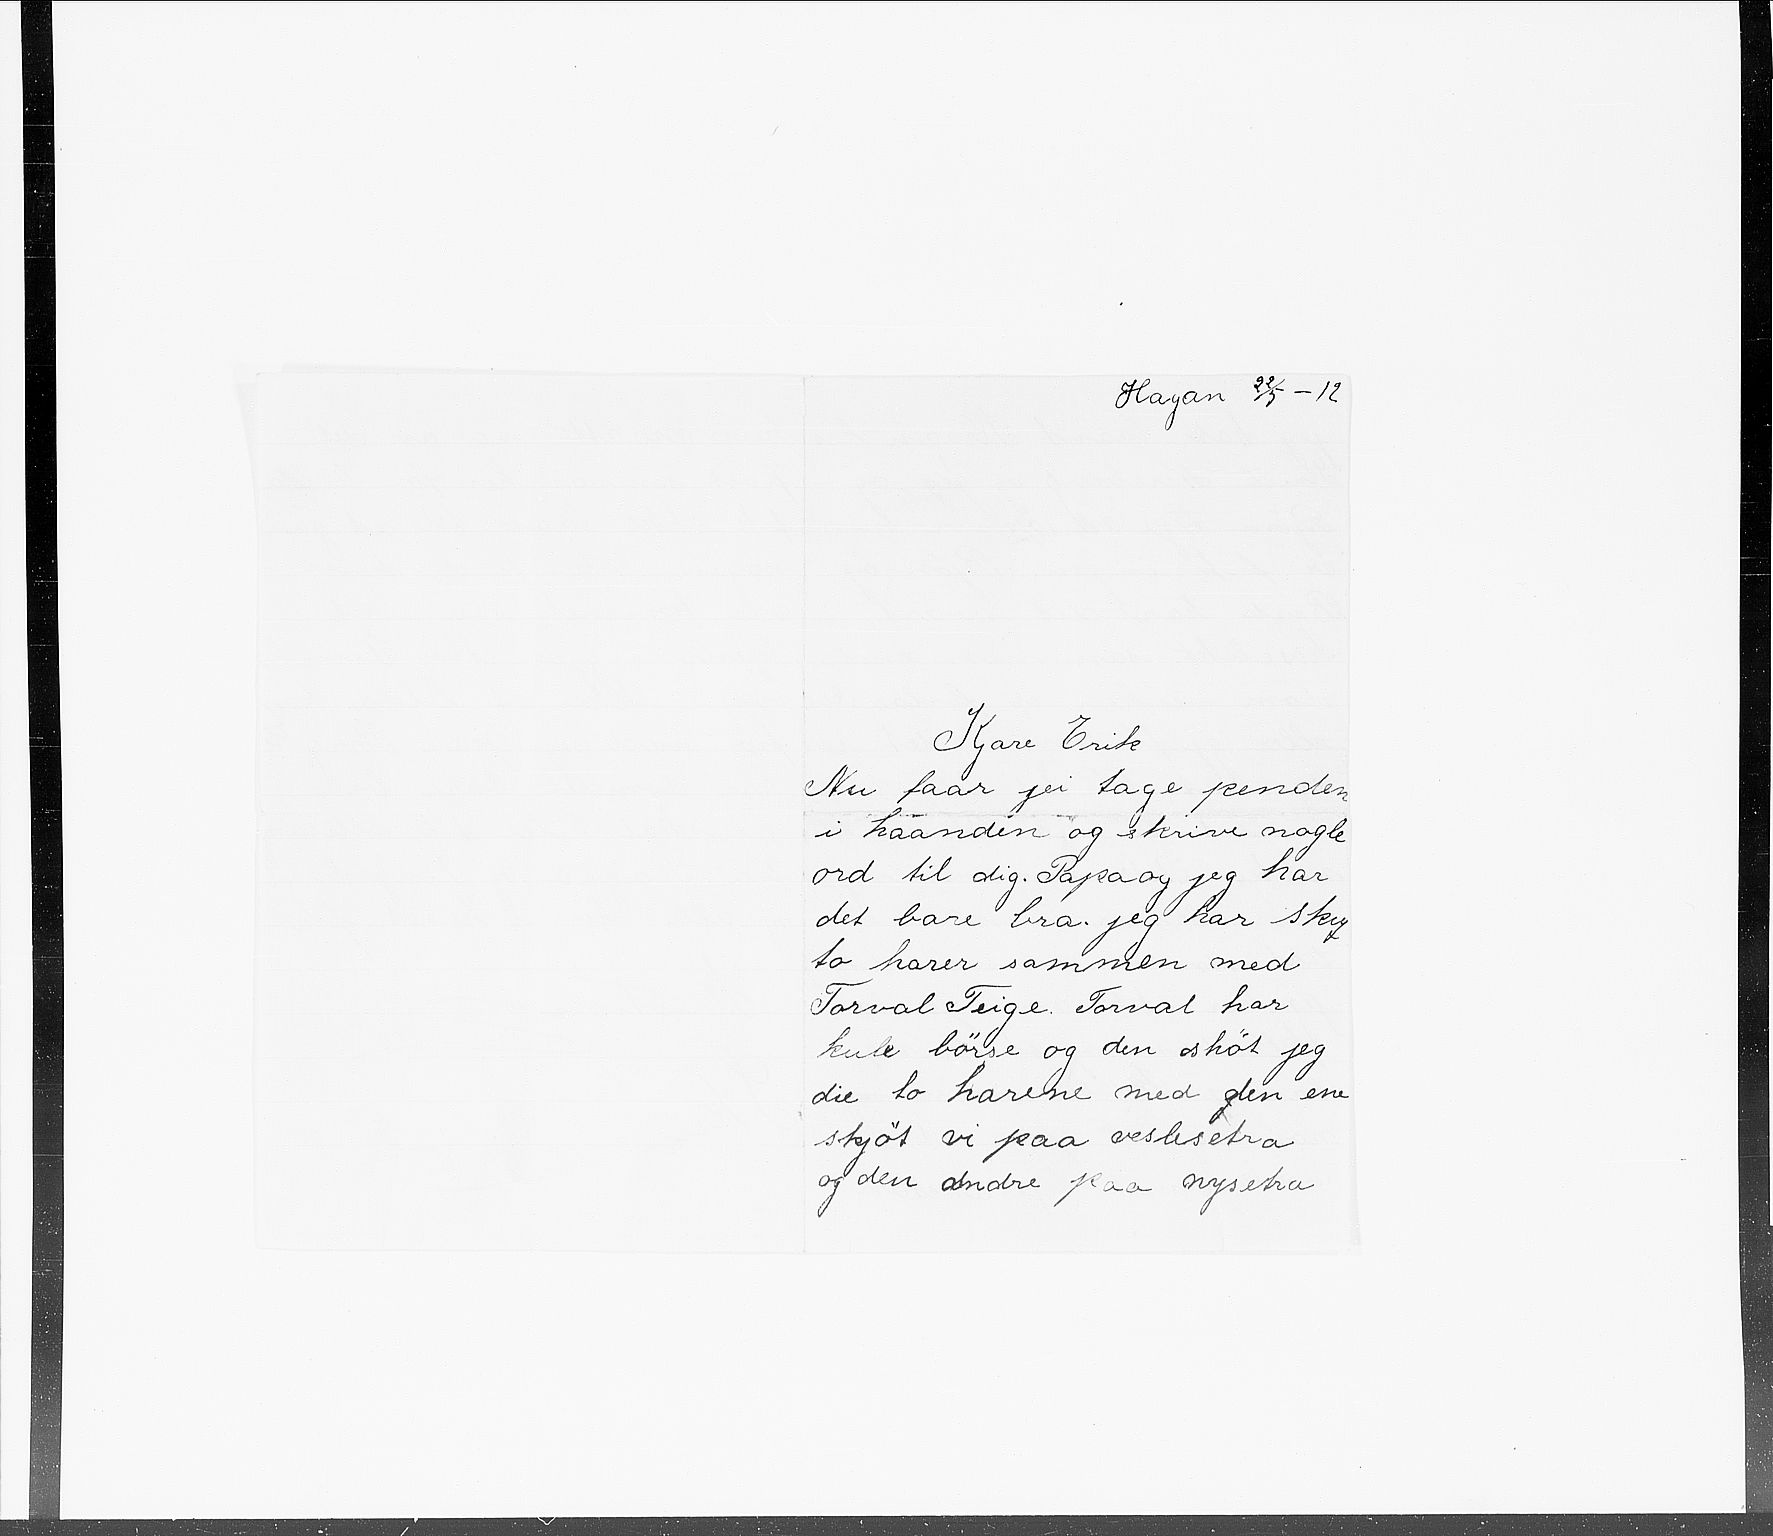 Hagan 22/5 – 12
Kjare Erik
Nu faar jei tage penden
i haanden og skrive nogle
ord til dig. Papa og jeg har
det bare bra. jeg har sky
to harer sammen med
Torval Teige. Torval har
kule börse og den sköt jeg
die to harene med den ene
skjöt vi paa veslesetra
og den andre paa nysetra